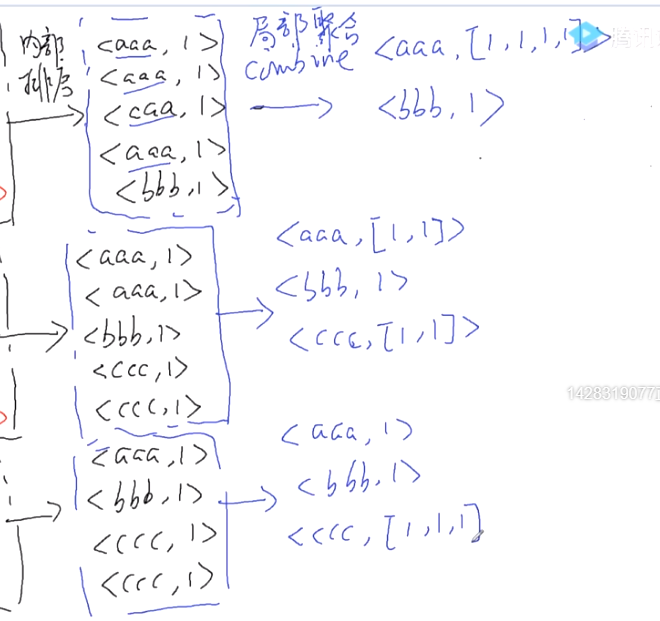 内部
排序
<aaa, 1>
<aaa, 1>
<caa, 1>
<aaa, 1>
<bbb, 1>
局部聚合
combine
<aaa, [1, 1, 1, 1]>
<bbb, 1>
腾讯
<aaa, 1>
<aaa, 1>
<bbb, 1>
<ccc, 1>
<ccc, 1>
<aaa, [1, 1]>
<bbb, 1>
<ccc, [1, 1]>
1428319077
<aaa, 1>
<bbb, 1>
<ccc, 1>
<ccc, 1>
<aaa, 1>
<bbb, 1>
<ccc, [1, 1, 1]